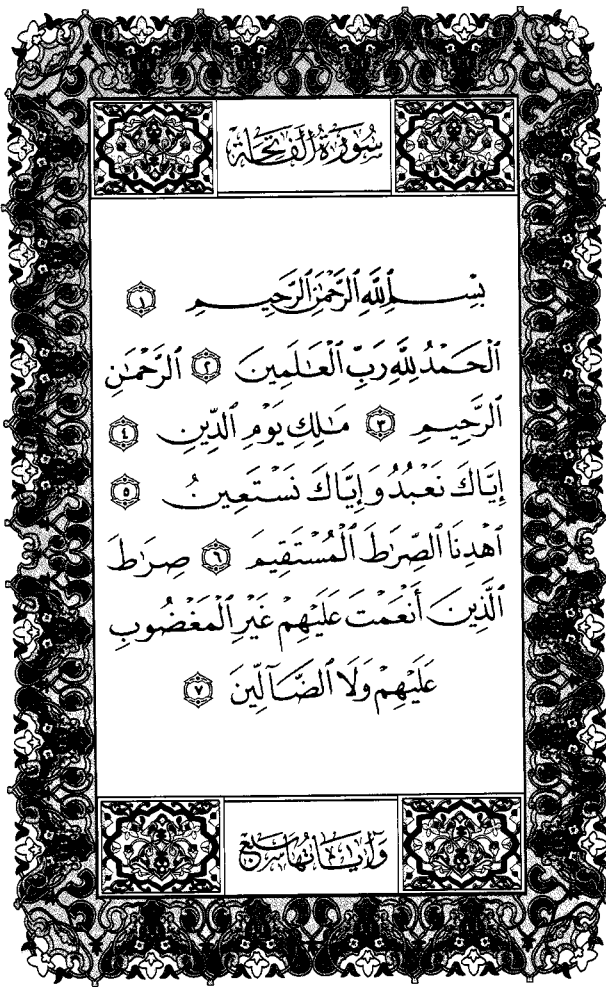 سُورَةُ ٱلْفَاتِحَةِ
بِسْمِ ٱللَّهِ ٱلرَّحْمَٰنِ ٱلرَّحِيمِ ١
ٱلْحَمْدُ لِلَّهِ رَبِّ ٱلْعَٰلَمِينَ ٢ ٱلرَّحْمَٰنِ
ٱلرَّحِيمِ ٣ مَٰلِكِ يَوْمِ ٱلدِّينِ ٤
إِيَّاكَ نَعْبُدُ وَإِيَّاكَ نَسْتَعِينُ ٥
ٱهْدِنَا ٱلصِّرَٰطَ ٱلْمُسْتَقِيمَ ٦ صِرَٰطَ
ٱلَّذِينَ أَنْعَمْتَ عَلَيْهِمْ غَيْرِ ٱلْمَغْضُوبِ
عَلَيْهِمْ وَلَا ٱلضَّآلِّينَ ٧
وَآيَاتُهَا سَبْعٌ